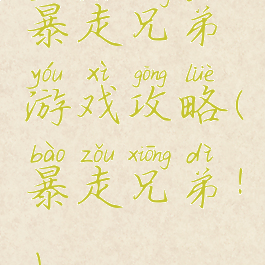 暴走兄弟
yóu xì gòng lüè
游戏攻略(
bào zǒu xiōng dì
暴走兄弟!
)